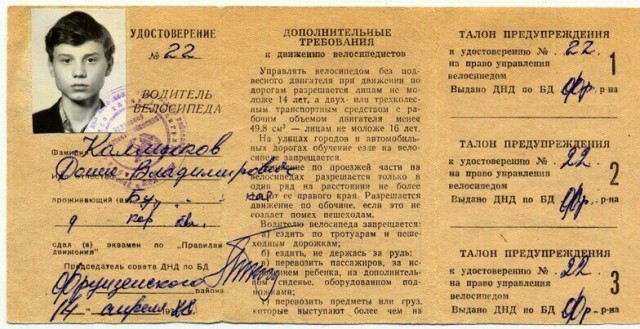 УДОСТОВЕРЕНИЕ
№ 22
ВОДИТЕЛЬ
ВЕЛОСИПЕДА
Фамилия
Владимирович
проживающий (а)
9 кор. кв.
сдал (а) экзамен по „Правилам
движения"
Председатель совета ДНД по БД
Фрунзенского
района
14 апреля
ДОПОЛНИТЕЛЬНЫЕ
ТРЕБОВАНИЯ
к движению велосипедистов
Управлять велосипедом без под-
весного двигателя при движении по
дорогам разрешается лицам не мо-
ложе 14 лет, а двух- или трехколес-
ным транспортным средством с ра-
бочим объемом двигателя менее
49,8 см³ — лицам не моложе 16 лет.
На улицах городов и автомобиль-
ных дорогах обучение езде на вело-
сипеде запрещается.
по проезжей части на
велосипедах разрешается только в
один ряд на расстоянии не более
от ее правого края. Разрешается
движение по обочине, если это не
создает помех пешеходам.
Водителю велосипеда запрещается:
а) ездить по тротуарам и пеше-
ходным дорожкам;
б) ездить, не держась за руль;
в) перевозить пассажиров, за ис-
ключением ребенка, на дополнитель-
ном сиденье, оборудованном под-
ножками;
г) перевозить предметы или груз,
которые выступают более чем на
ТАЛОН ПРЕДУПРЕЖДЕНИЯ
к удостоверению № 22
на право управления
велосипедом
1
Выдано ДНД по БД Фр. р-на
ТАЛОН ПРЕДУПРЕЖДЕНИЯ
к удостоверению № 22
на право управления
велосипедом
2
Выдано ДНД по БД Фр. р-на
ТАЛОН ПРЕДУПРЕЖДЕНИЯ
к удостоверению № 22
на право управления
велосипедом
3
Выдано ДНД по БД Фр. р-на